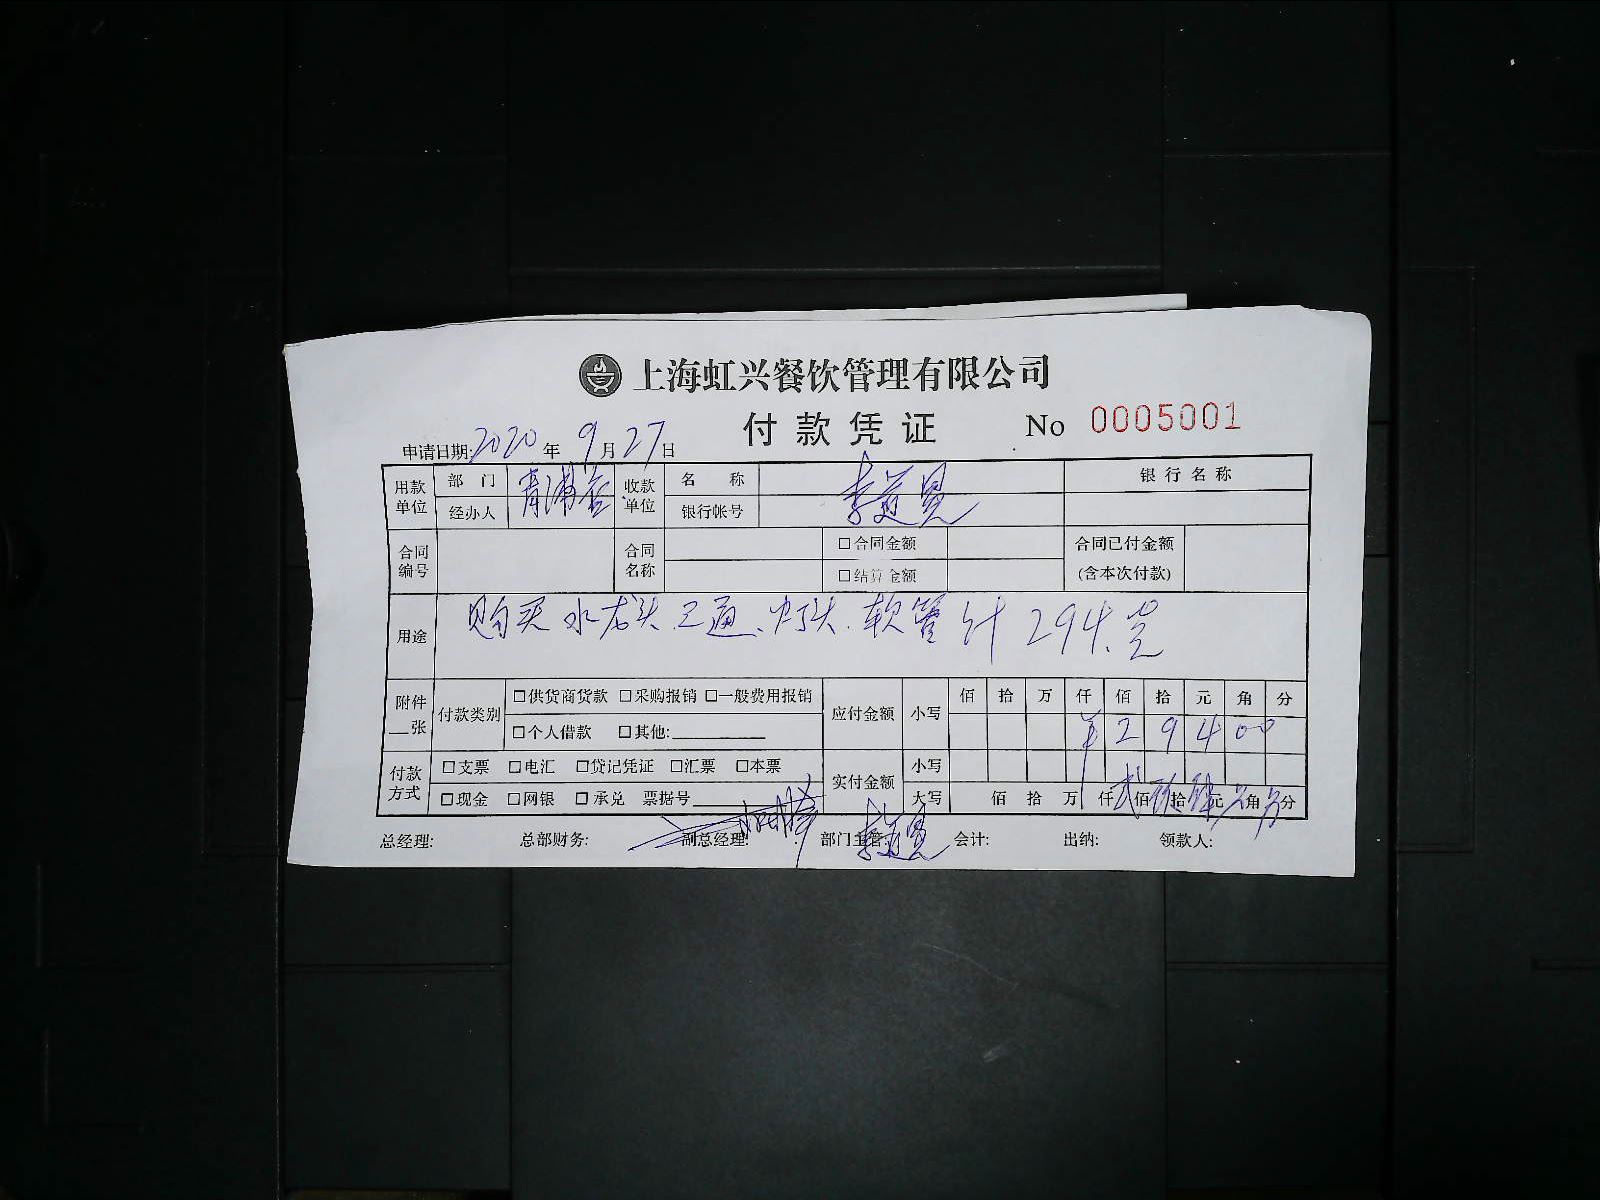 上海虹兴餐饮管理有限公司
付款凭证 No 0005001
申请日期:2020年9月27日
用款单位 部门 青浦 收款单位 名称 李 银行名称
经办人 银行帐号
合同编号 合同名称 □合同金额 合同已付金额
□结算金额 (含本次付款)
用途 购买水龙头、三通、灯头、软管 计294.元
附件__张 付款类别 □供货商货款 □采购报销 □一般费用报销 应付金额 小写 佰 拾 万 仟 佰 拾 元 角 分
□个人借款 □其他:________ ¥ 2 9 4 0 0
付款方式 □支票 □电汇 □贷记凭证 □汇票 □本票 实付金额 小写
□现金 □网银 □承兑 票据号________ 大写 佰 拾 万 仟 贰佰 玖拾 肆元 角 分
总经理: 总部财务: 副总经理: 部门主管: 李 会计: 出纳: 领款人: